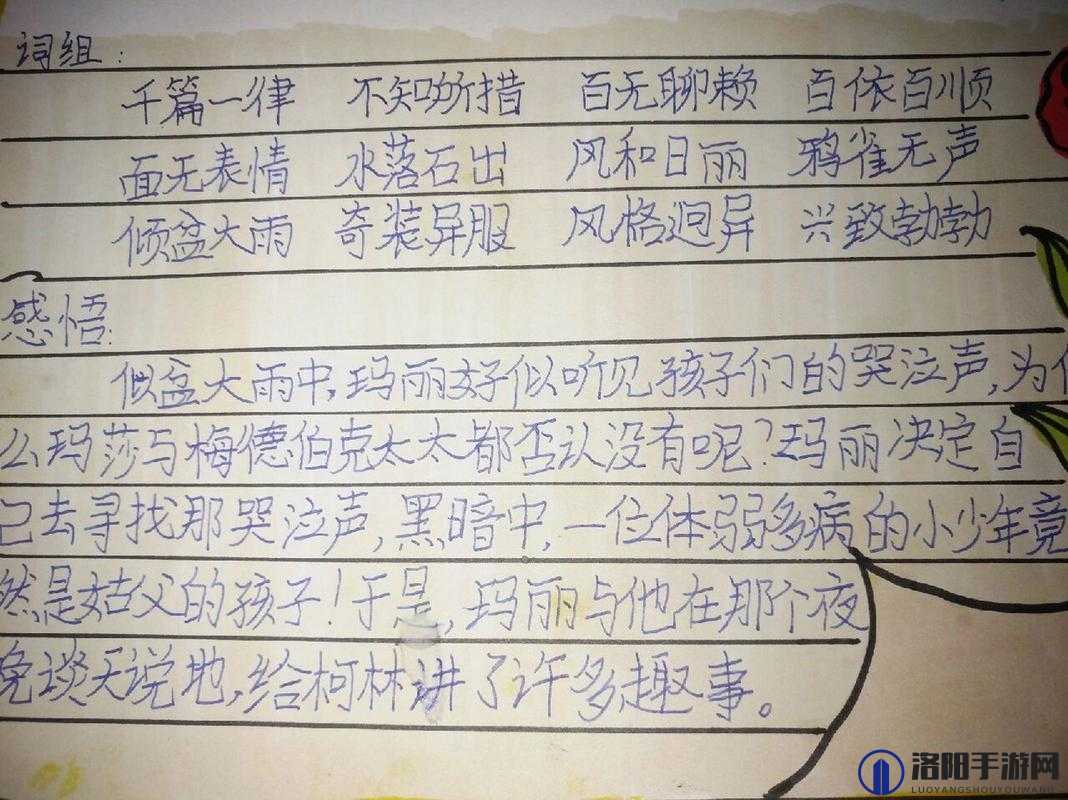 词组：
千篇一律 不知所措 百无聊赖 百依百顺
面无表情 水落石出 风和日丽 鸦雀无声
倾盆大雨 奇装异服 风格迥异 兴致勃勃
感悟：
倾盆大雨中，玛丽好似听见孩子们的哭泣声，为什
么玛莎与梅德伯克太太都否认没有呢？玛丽决定自
己去寻找那哭泣声，黑暗中，一位体弱多病的小少年竟
然是姑父的孩子！于是，玛丽与他在那个夜
晚谈天说地，给柯林讲了许多趣事。
洛阳手游网
LUOYANGSHOUYOUWANG